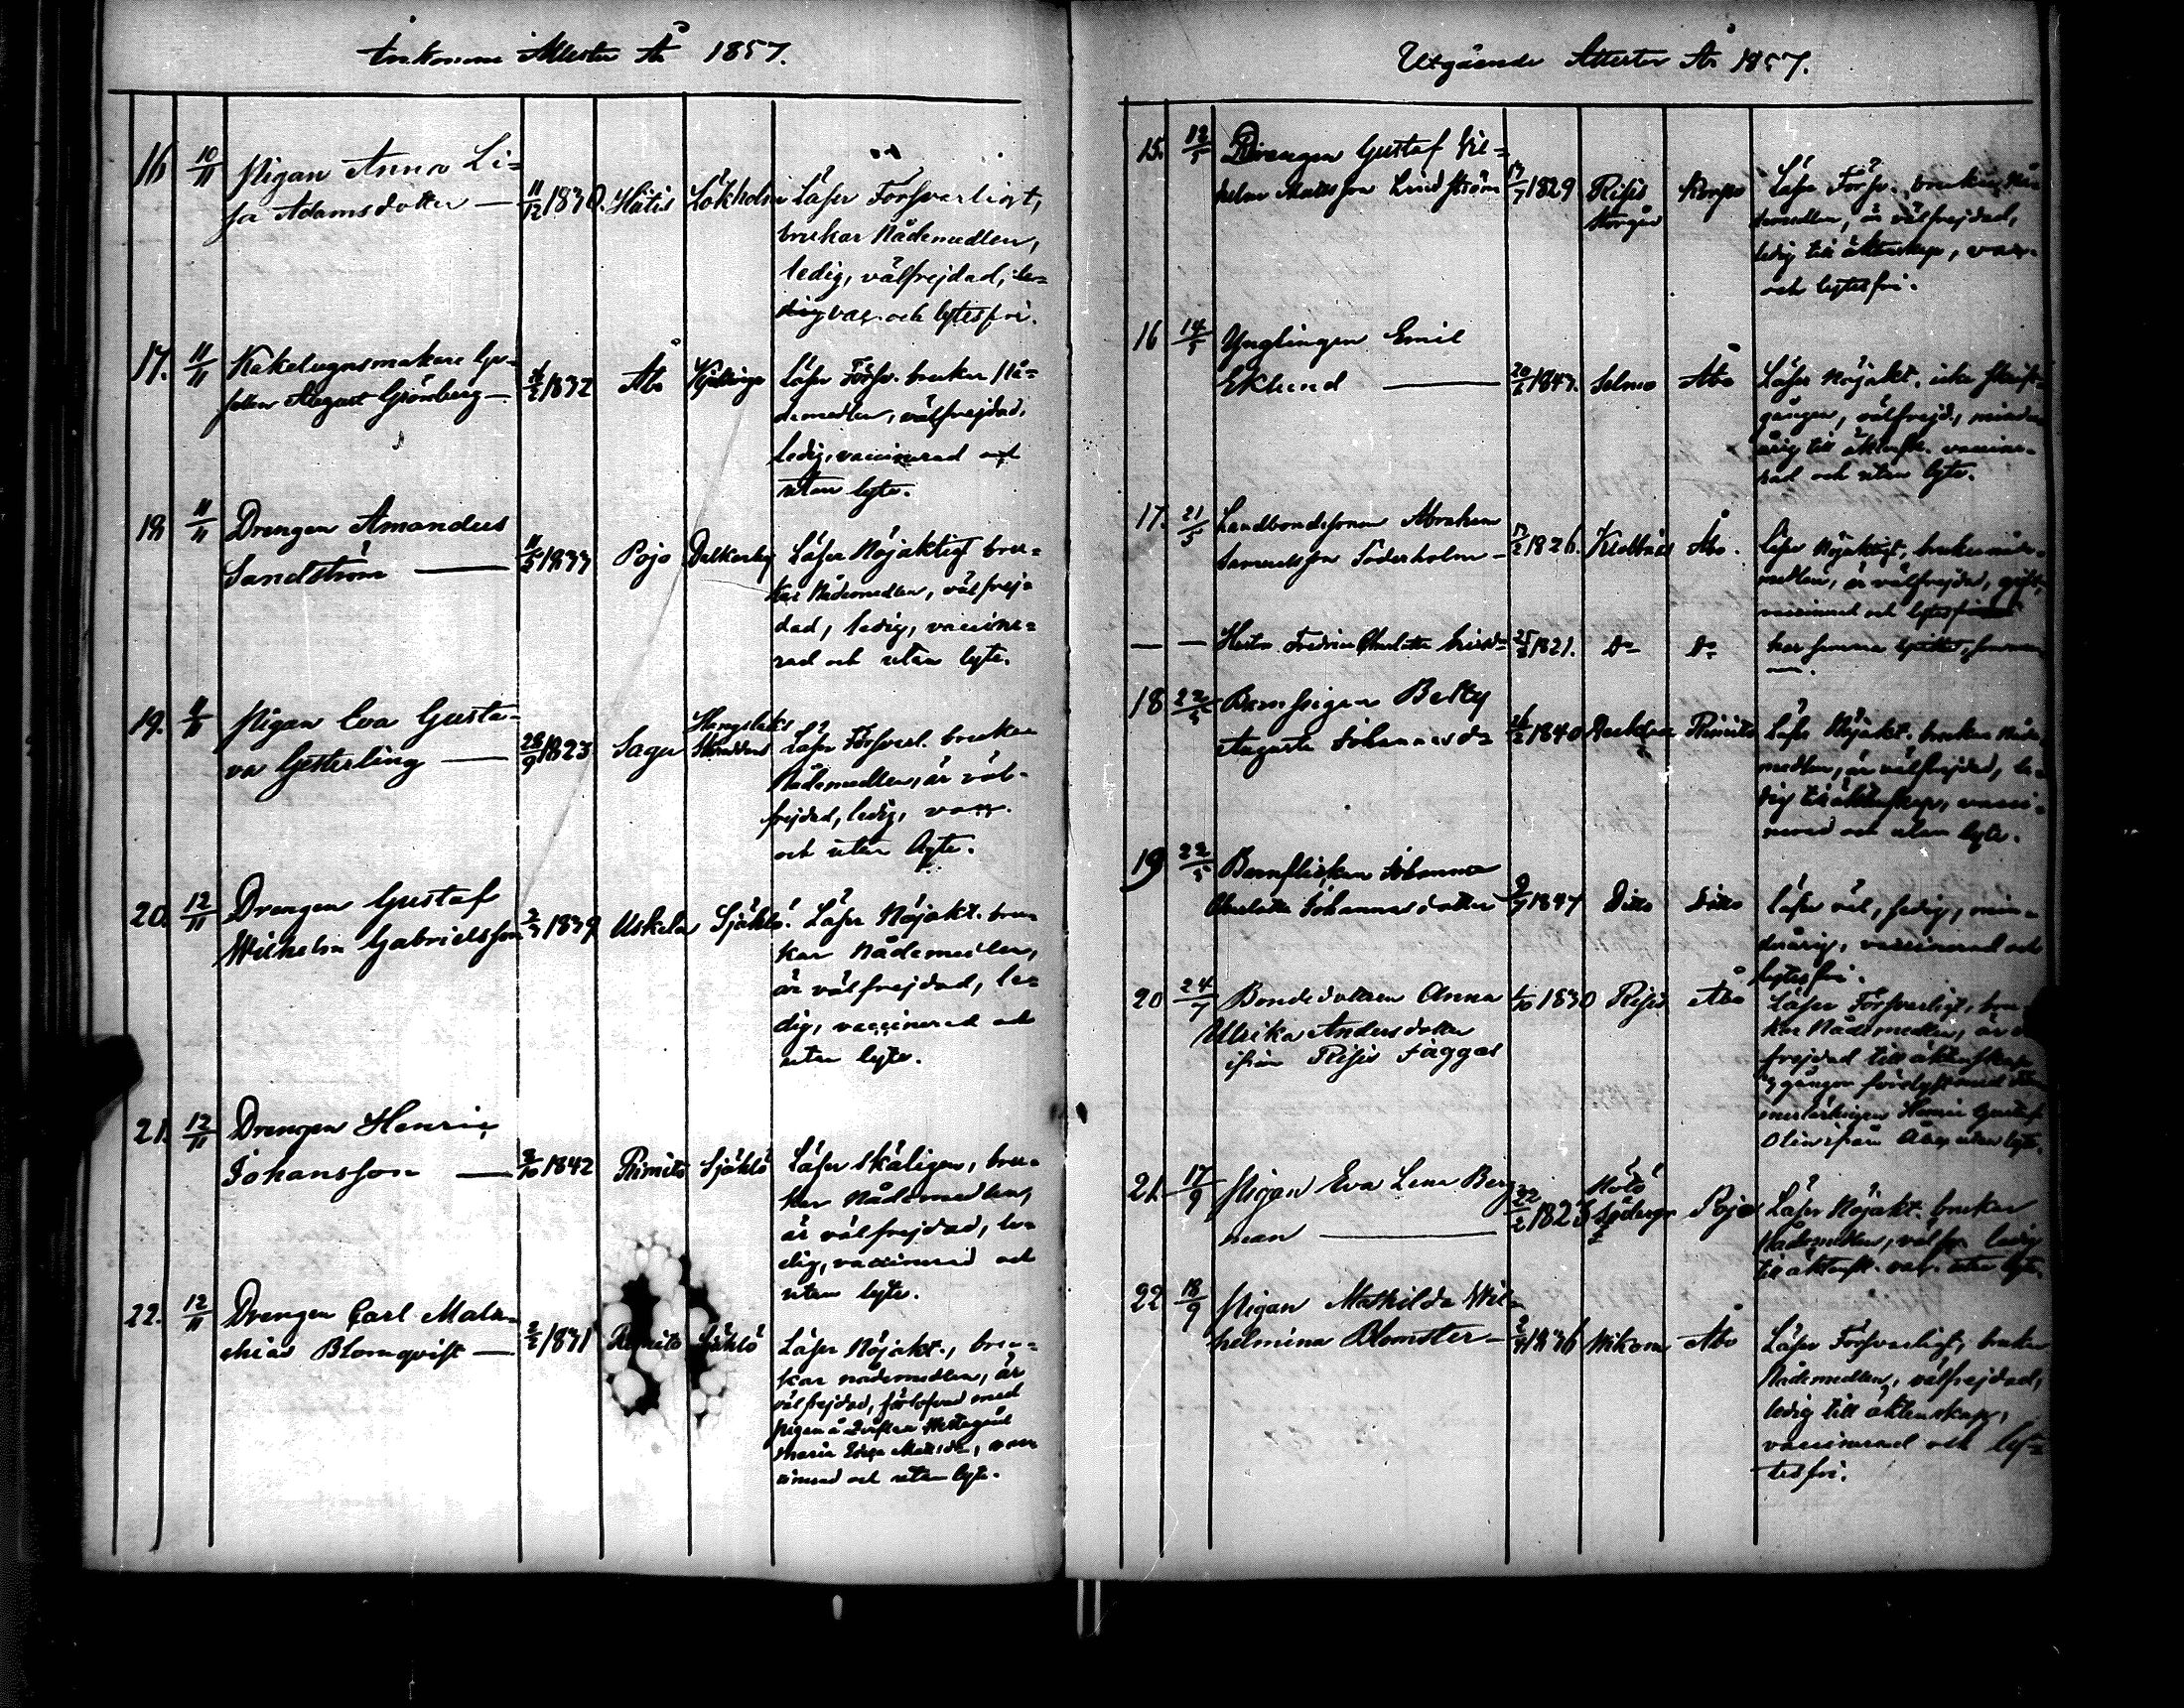 Inkomne Attester År 1857.
16 10/11 Pigan Anna Li=
sa Adamsdotter — 11/12 1830. Hitis Lökholm Läser Försvarligt,
brukar Nådemedlen,
ledig, välfrejdad, le=
dig vac. och lytesfri.
17. 11/11 Kakelugnsmakare Ge-
sellen August Grönberg — 1832 Åbo Läser Försv. brukar Nå-
demedlen, välfrejdad,
ledig, vaccinerad och
utan lyte.
18 11/11 Drengen Amandus
Sandström — 11/5 1833 Pojo Dalkarby Läser Nöjaktigt bru-
kar Nådemedlen, välfrej-
dad, ledig, vaccine-
rad och utan lyte.
19. Pigan Eva Gusta-
va Gesterling — 28/9 1823 Sagu Läser Försvarl. brukar
Nådemedlen, är väl-
frejdad, ledig, vacc.
och utan lyte.
20. 12/11 Drengen Gustaf
Wilhelm Gabrielsson 1839 Uskela Själlö. Läser Nöjakt. bru-
kar Nådemedlen,
är välfrejdad, le-
dig, vaccinerad och
utan lyte.
21. 12/11 Drengen Henric
Johansson — 1842 Rimito Själlö Läser skäligen, bru-
kar Nådemedlen,
är välfrejdad, le-
dig, vaccinerad och
utan lyte.
22. 12/11 Drengen Carl Mala-
chias Blomqvist — 2/2 1831 Rimito Själlö Läser Nöjakt., bru-
kar nådemedlen, är
välfrejdad, förlofvad med
pigan
Maria, vac
cinerad och utan lyte.
Utgående Attester År 1857.
15. 12/5 Drengen Gustaf Vil-
helm Mattsson Lindström 1829 Risis Korpo Läser Försv. brukar Nå-
Storgård demedlen, är välfrejdad,
ledig till äktenskap, vac.
och lytesfri.
16 14/5 Ynglingen Emil
Eklund — 1843. Selmo Åbo Läser Nöjakt. icke skrift-
gången, välfrejd., minder
årig till äktensk. vaccine-
rad och utan lyte.
17. 21/5 Landbondesonen Abraham
Samuelsson Söderholm — 1826. Åbo. Läser Nöjaktigt, brukar nåde-
medlen, är välfrejdad, gift,
vaccinerad och lytesfri
— — Hustru Fredrica Charlotta 1821. Do Do har samma
18 22/5 Barnpigan Betty
Augusta Johannesdr 1840 Rimito Läser Nöjakt. brukar Nåde
medlen, är välfrejdad, le-
dig till äktenskap, vacci-
nerad och utan lyte.
19 22/5 Barnflickan Johanna
Charlotta Johannesdotter 1847 Ditto Ditto Läser väl, ledig, min-
derårig, vaccinerad och
lytesfri.
20 24/7 Bondedottren Anna 1830 Risis Åbo Läser Försvarligt, bru-
Ulrika Andersdotter kar Nådemedlen, är
ifrån Risis Jäggas frejdad till äktenskap
gånger förlyst med
Henric Gustaf
Olin ifrån Åbo, utan lyte.
21. 17/9 Pigan Eva Lena Berg
man — 1823 Pojo Läser Nöjakt. brukar
Nådemedlen, välfr. ledig
till äktensk. vac. utan lyte.
22 18/9 Pigan Mathilda Wil-
helmina Blomster — 1836 Wikom Åbo Läser Försvarligt, brukar
Nådemedlen, välfrejdad,
ledig till äktenskap,
vaccinerad och ly-
tesfri.